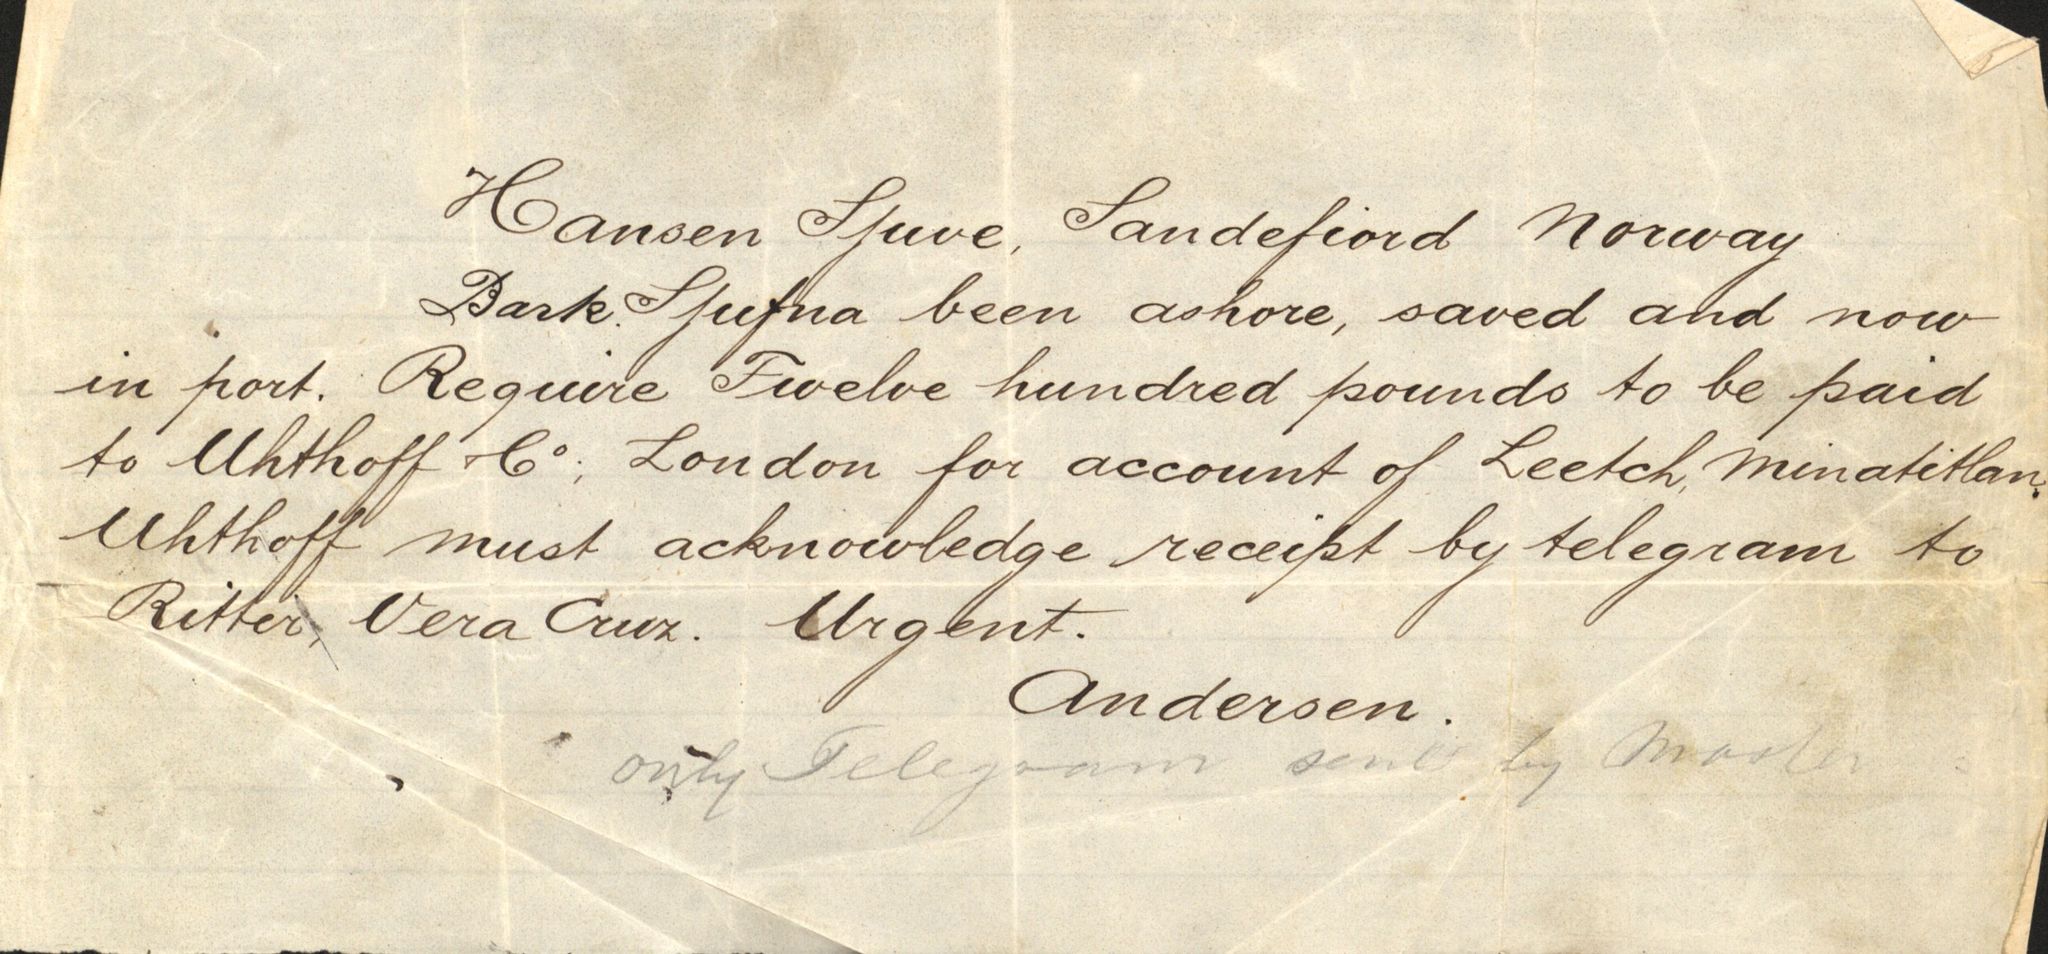 Hansen Sjuve, Sandefiord Norway
Bark. Sjufna been ashore, saved and now
in port. Require Twelve hundred pounds to be paid
to Uhthoff & Co; London for account of Leetch, Minatitlan.
Uhthoff must acknowledge receipt by telegram to
Ritter, Vera Cruz. Urgent.
Andersen.
only Telegram sent by Master